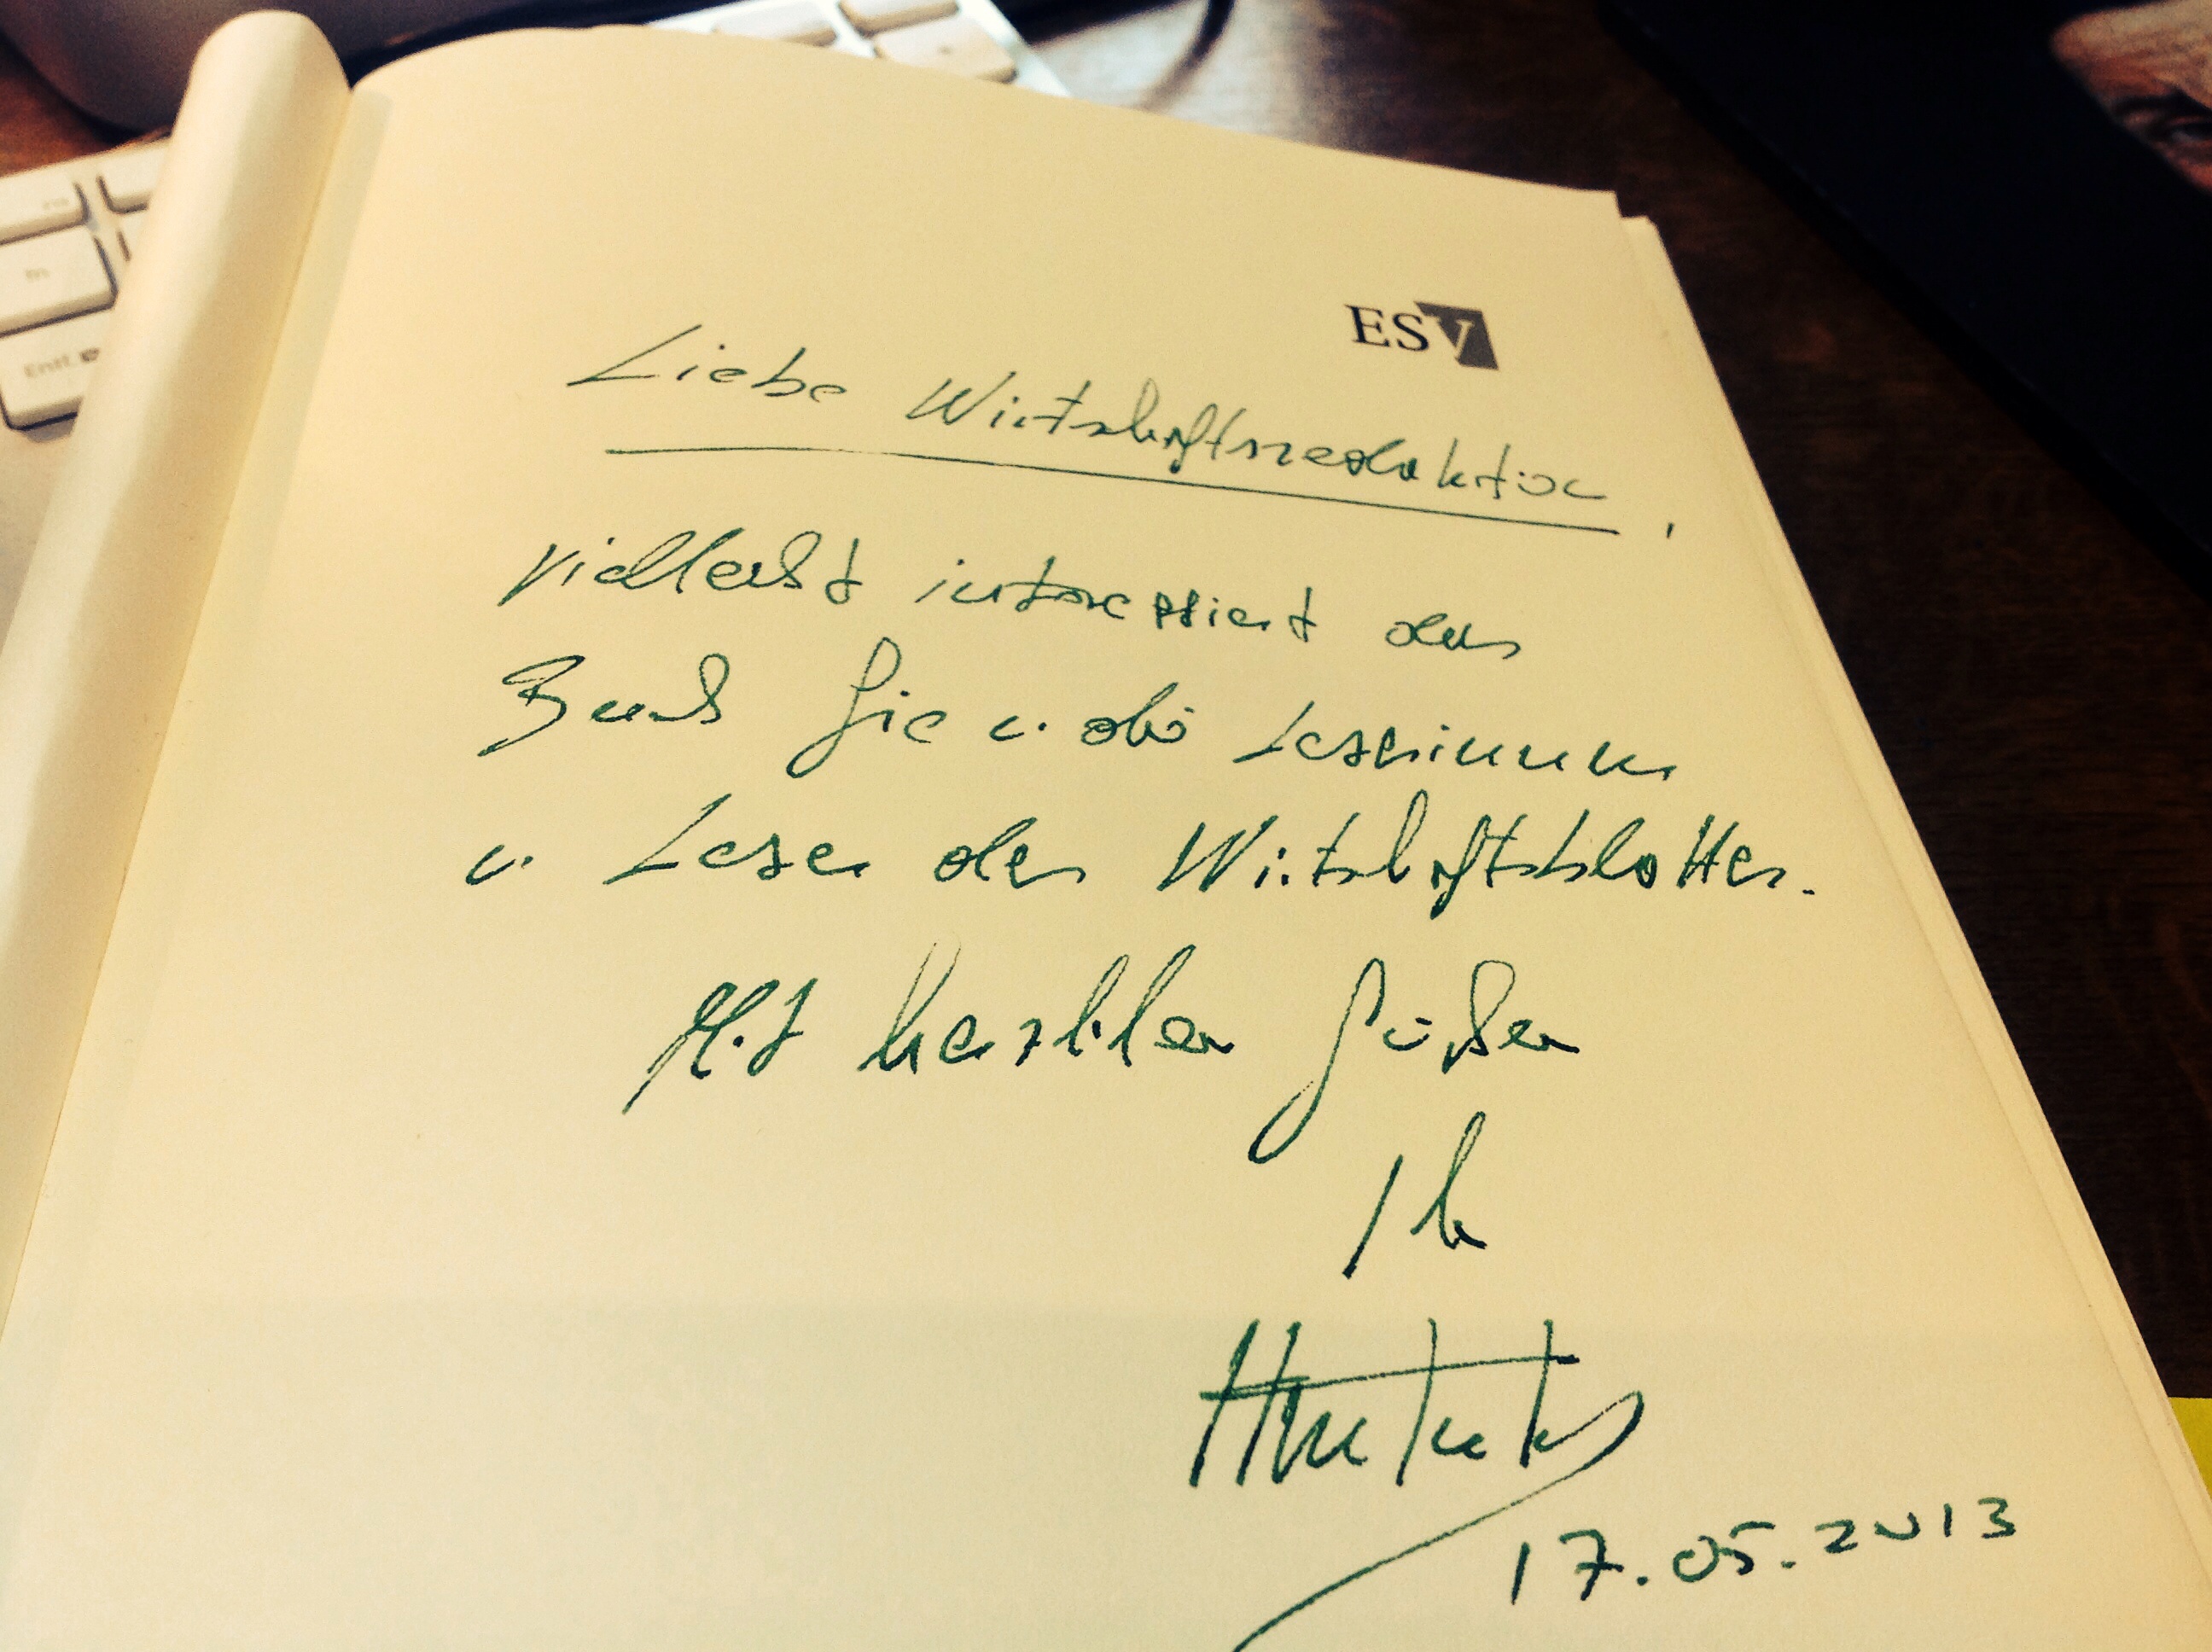 ESV
Liebe Wirtschaftsredaktion,
vielleicht interessiert das
Buch Sie u. die Leserinnen
u. Leser des Wirtschaftsblattes.
Mit herzlichen Grüßen
Ihr
17.05.2013
fn
Entf.